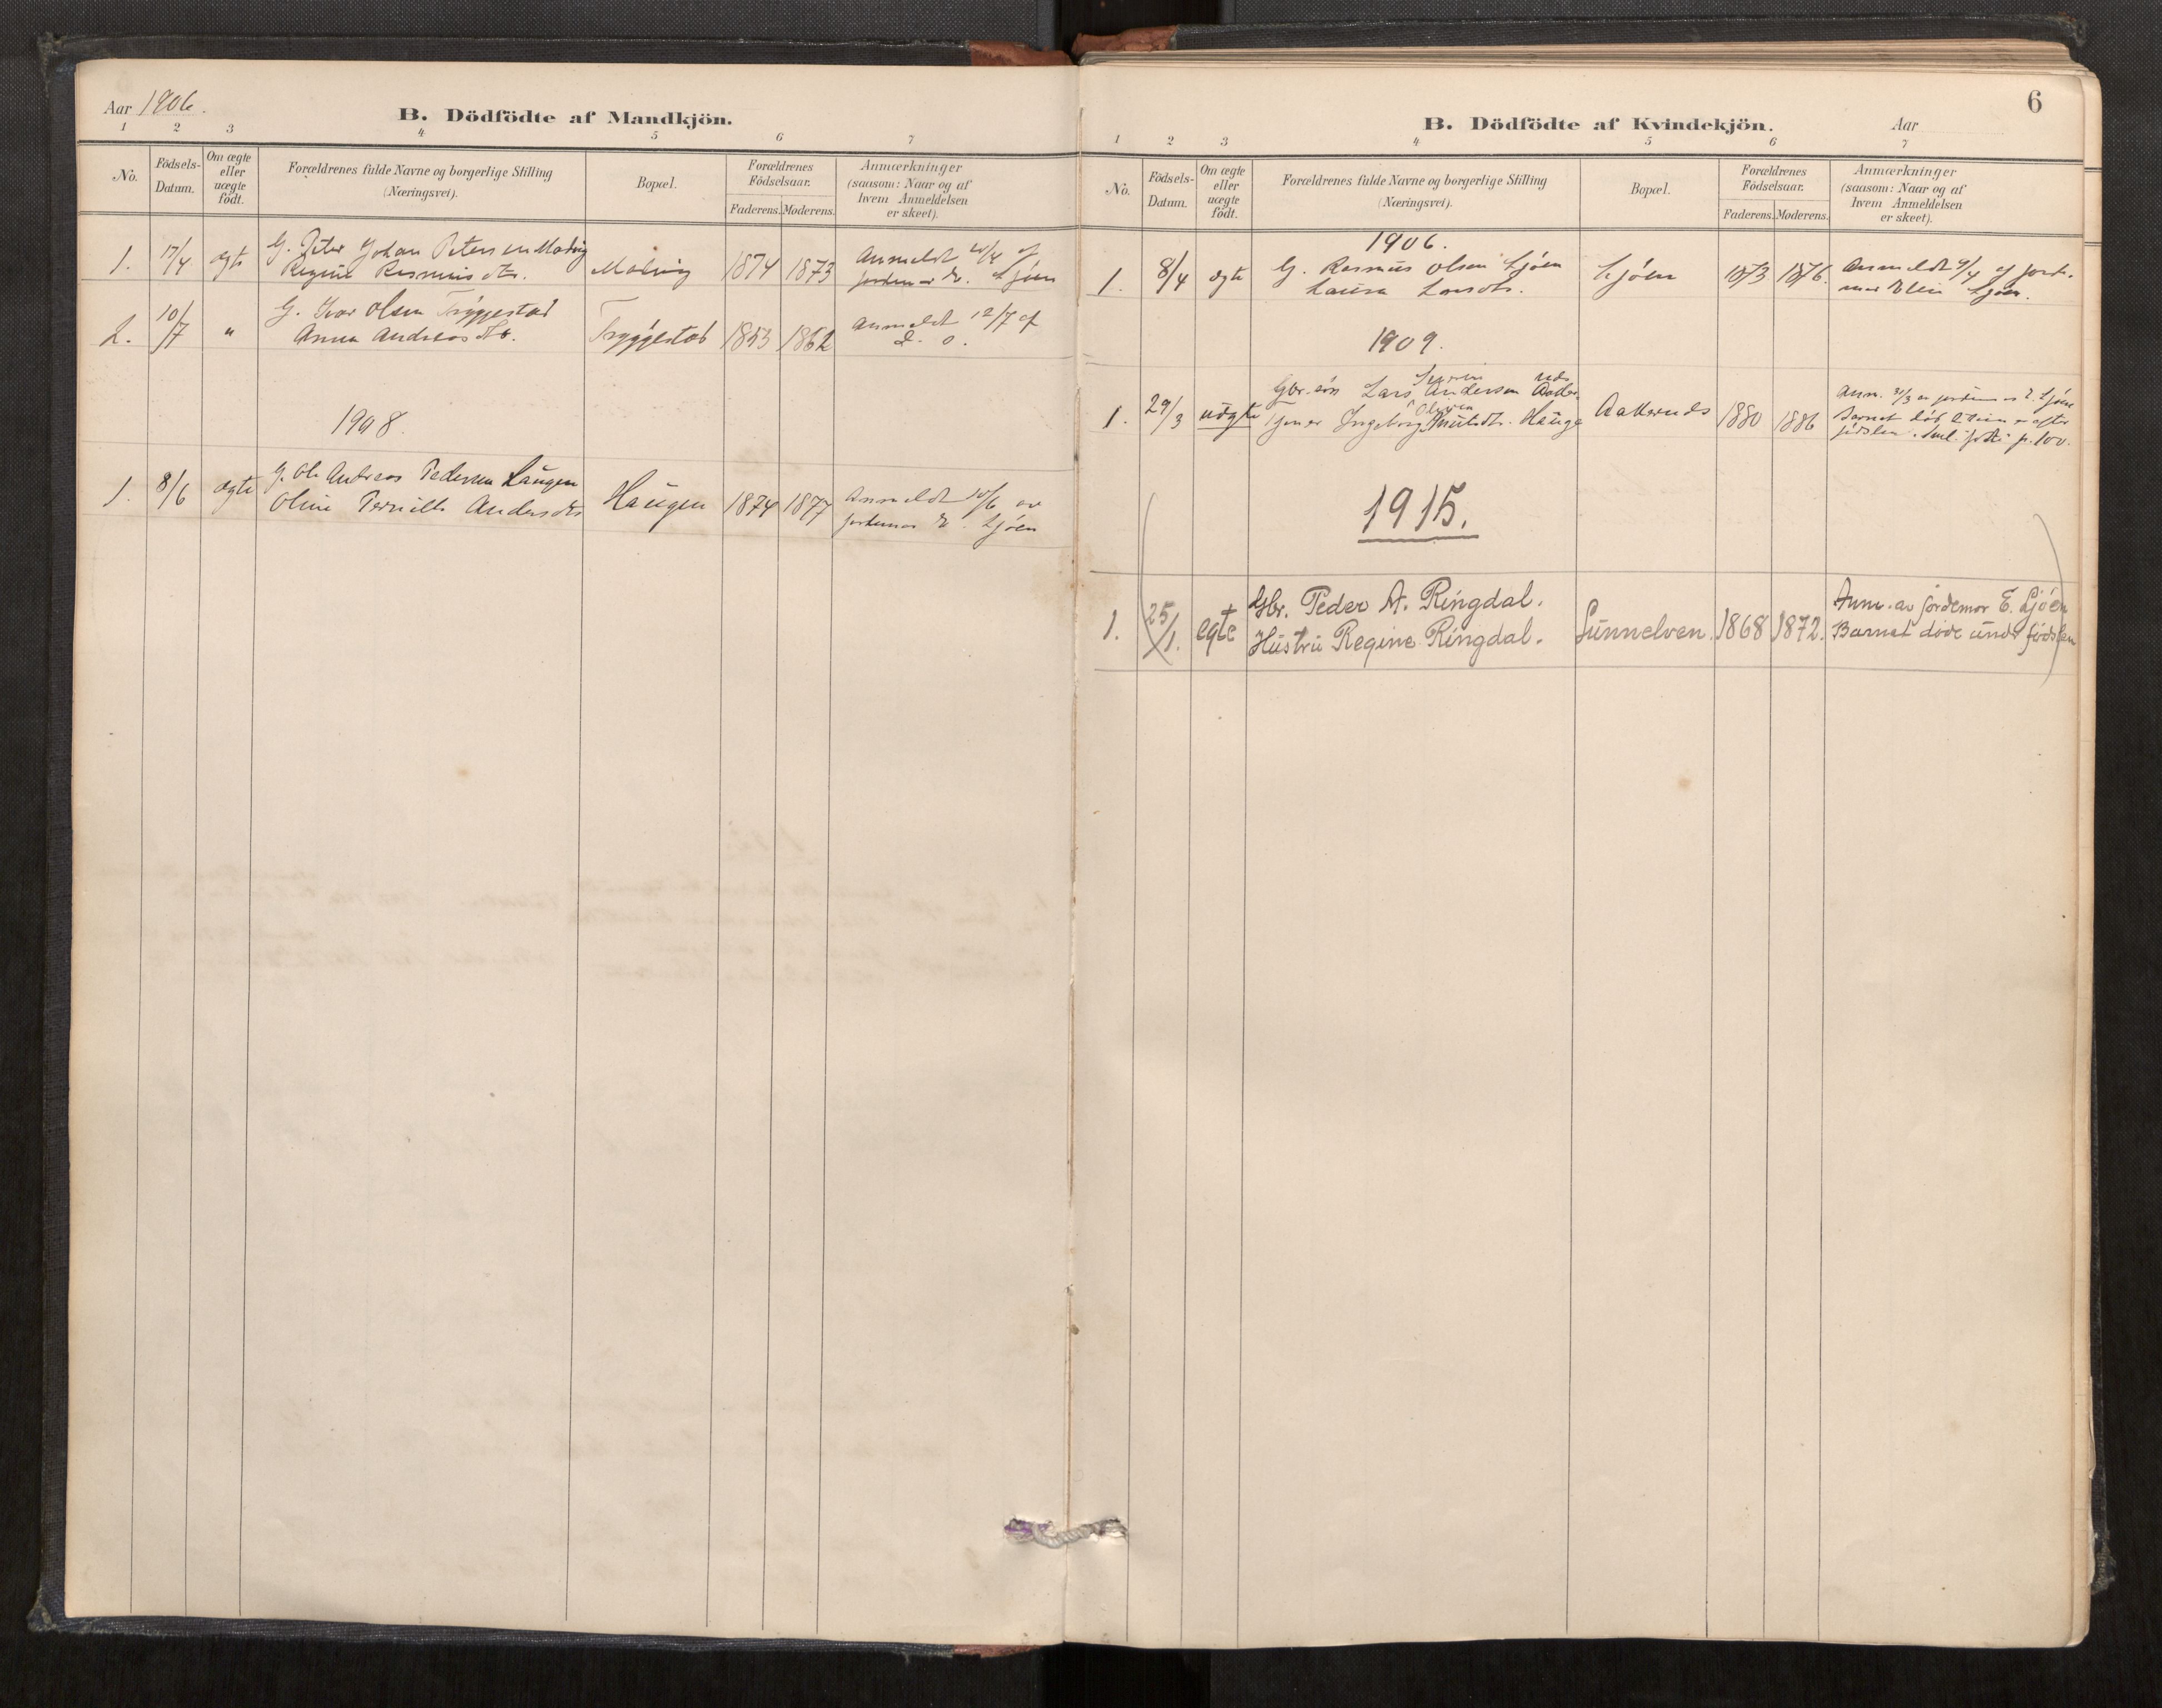 Aar 1906.
B. Dödfödte af Mandkjön.
1 2 3 4 5 6 7
No.
Födsels-
Datum.
Om ægte
eller
uægte
födt.
Forældrenes fulde Navne og borgerlige Stilling
(Næringsvei).
Bopæl.
Forældrenes
Födselsaar.
Faderens. Moderens.
Anmærkninger
(saasom: Naar og af
hvem Anmeldelsen
er skeet).
1. 17/4 ægte
G. Peter Johan Petersen Maling
Regine Rasmusdtr.
Maling 1874 1873
Anmeldt 20/4 af
jordemor E. Ljöen
2. 10/7 "
G. Ivar Olsen Tryggestad
Anna Andreasdtr.
Tryggestad 1853 1862
Anmeldt 12/7 af
d. o.
1908.
1. 8/6 ægte
G. Ole Andreas Pedersen Haugen
Oline Pernille Andersdtr
Haugen 1874 1877
Anmeldt 10/6 av
jordemor E. Ljöen
6
B. Dödfödte af Kvindekjön.
Aar
1 2 3 4 5 6 7
No.
Födsels-
Datum.
Om ægte
eller
uægte
födt.
Forældrenes fulde Navne og borgerlige Stilling
(Næringsvei).
Bopæl.
Forældrenes
Födselsaar.
Faderens. Moderens.
Anmærkninger
(saasom: Naar og af
hvem Anmeldelsen
er skeet).
1906.
1. 8/4 ægte
G. Rasmus Olsen Ljöen
Laura Larsdtr.
Ljöen 1873 1876.
Anmeldt 9/4 af jorde-
mor Elen Ljöen.
1909.
1. 29/3 uægte
Gbr. sön Lars Andersen
Ingeborg Knutsdtr. Hauge
1880 1886
Anm. 31/3 av jordemor E. Ljöen
Barnet döde efter
födslen. p. 100.
1915.
1. 25/1. egte
Gbr. Peder A. Ringdal.
Hustru Regine Ringdal.
Sunnelven. 1868 1872.
Anm. av jordemor E. Ljöen
Barnet döde under födslen